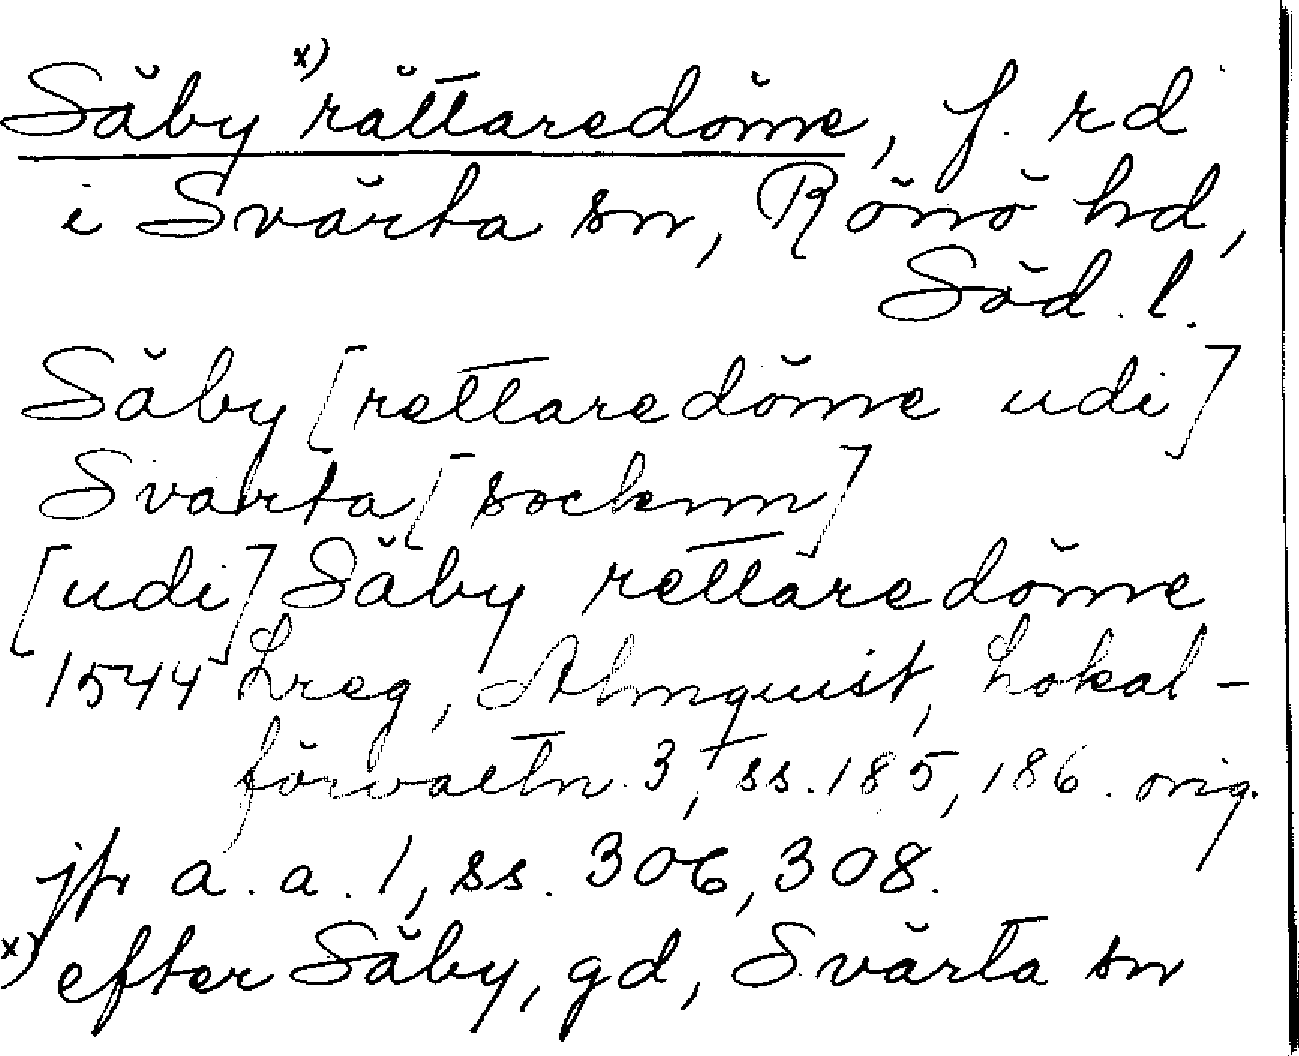 Säby x) rättaredöme, f. rd
i Svärta sn, Rönö hd,
Söd. l.
Säby [rettaredöme udi]
Svarta [socknn]
[udi] Säby rettaredöme
1544 Lreg, Almquist, Lokal-
förvaltn. 3, ss. 185, 186. orig.
jfr a. a. 1, ss. 306, 308.
x) efter Säby, gd, Svärta sn